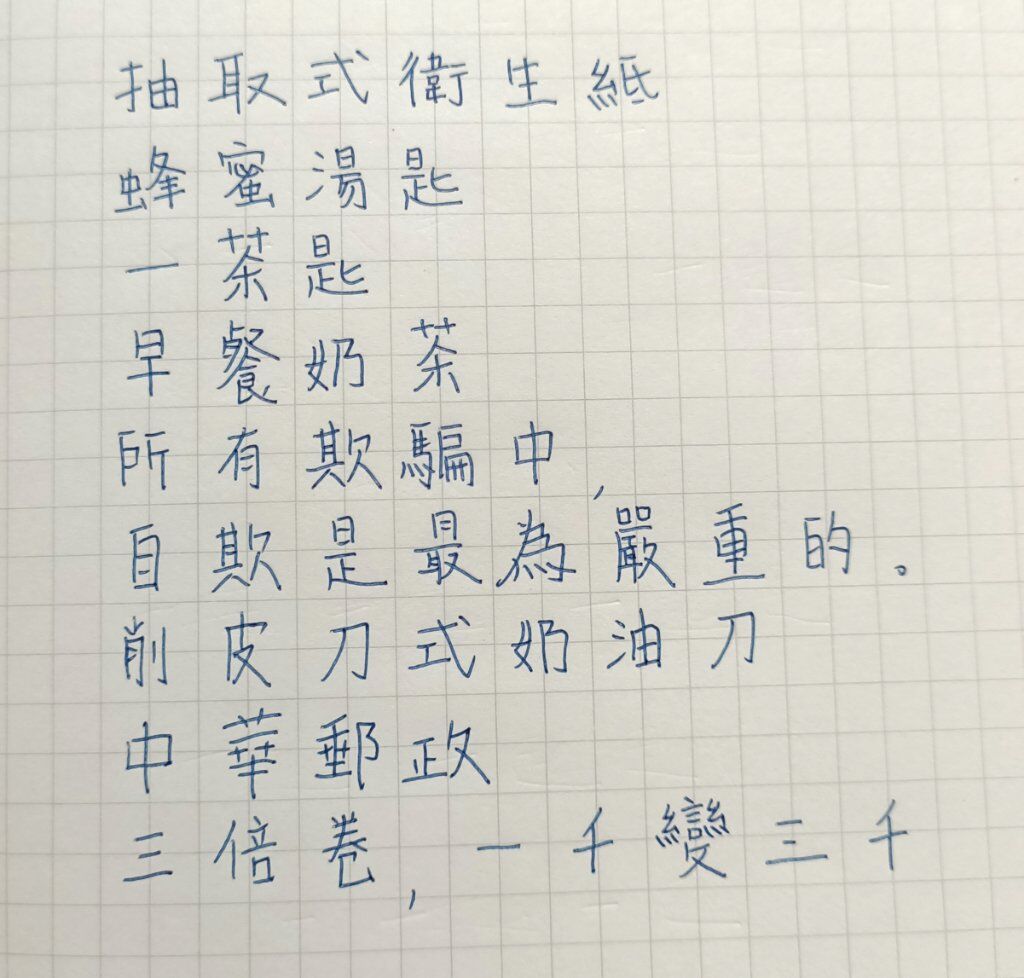 抽取式衛生紙
蜂蜜湯匙
一茶匙
早餐奶茶
所有欺騙中,
自欺是最為嚴重的。
削皮刀式奶油刀
中華郵政
三倍卷,一千變三千